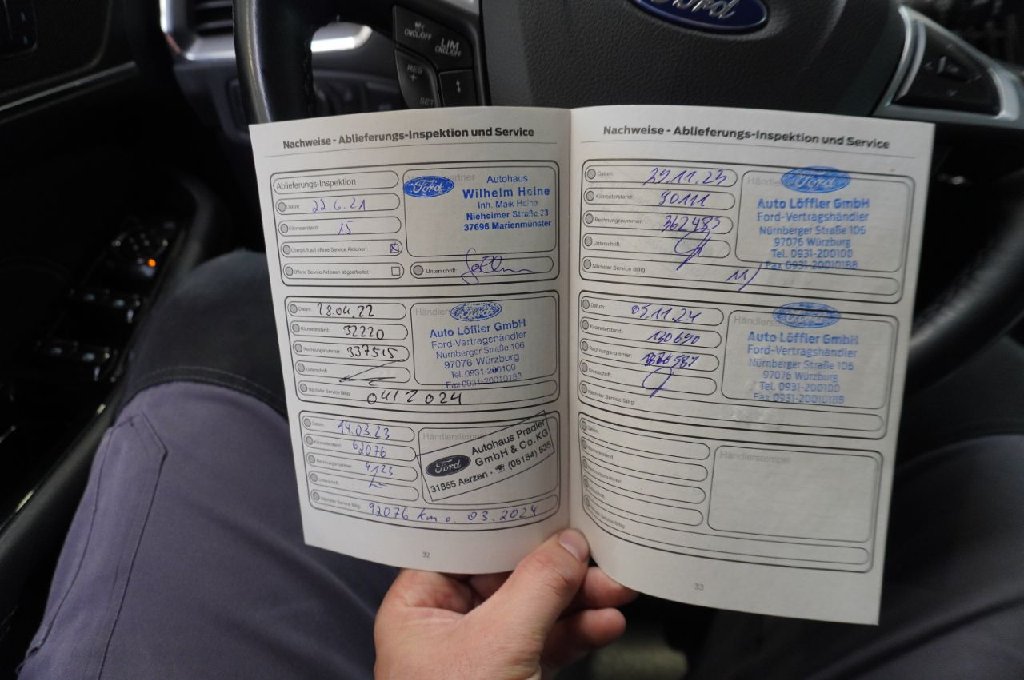 Ford
LIM
Nachweise - Ablieferungs-Inspektion und Service
Ablieferungs-Inspektion
Datum
23.6.21
Kilometerstand
15
Unterschrift
Ford
Autohaus
Wilhelm Heine
Inh. Maik Heine
Nieheimer Straße 23
37696 Marienmünster
Datum
28.04.22
Kilometerstand
32220
Rechnungsnummer
337515
Unterschrift
Nächster Service fällig
04/2024
Ford
Auto Löffler GmbH
Ford-Vertragshändler
Nürnberger Straße 106
97076 Würzburg
Tel. 0931-200100
Fax 0931-20010188
14.03.23
62076
4123
92076 km o. 03.2024
Ford
Autohaus Pradler
GmbH & Co. KG
31855 Aerzen
32
Nachweise - Ablieferungs-Inspektion und Service
Datum
29.11.23
Kilometerstand
90111
Rechnungsnummer
362485
Unterschrift
Nächster Service fällig
Ford
Auto Löffler GmbH
Ford-Vertragshändler
Nürnberger Straße 106
97076 Würzburg
Tel. 0931-200100
Fax 0931-20010188
Datum
05.11.24
Kilometerstand
120690
Rechnungsnummer
Unterschrift
Nächster Service fällig
Ford
Auto Löffler GmbH
Ford-Vertragshändler
Nürnberger Straße 106
97076 Würzburg
Tel. 0931-200100
Fax 0931-20010188
Händlerstempel
33